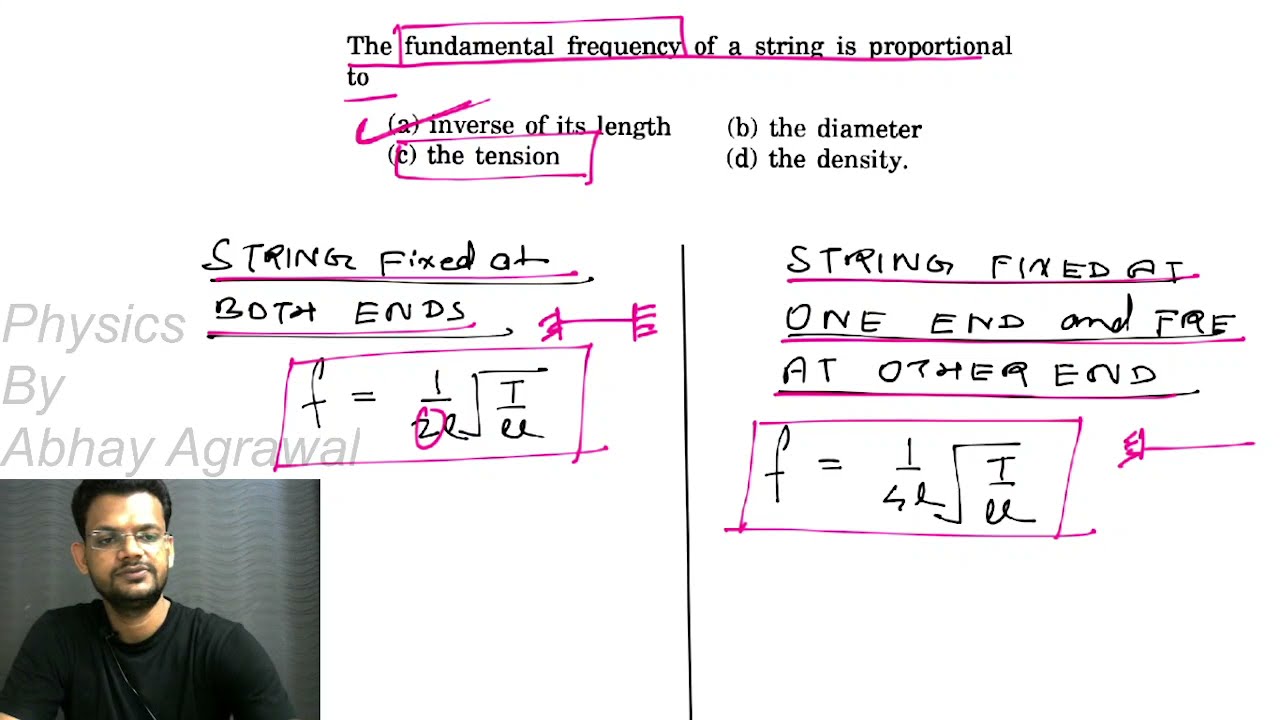 The fundamental frequency of a string is proportional
to
(a) inverse of its length (b) the diameter
(c) the tension (d) the density.
STRING Fixed at
BOTH ENDS
f = 1/2l √T/μ
STRING FIXED AT
ONE END and FRE
AT OTHER END
f = 1/4l √T/μ
Physics
By
Abhay Agrawal